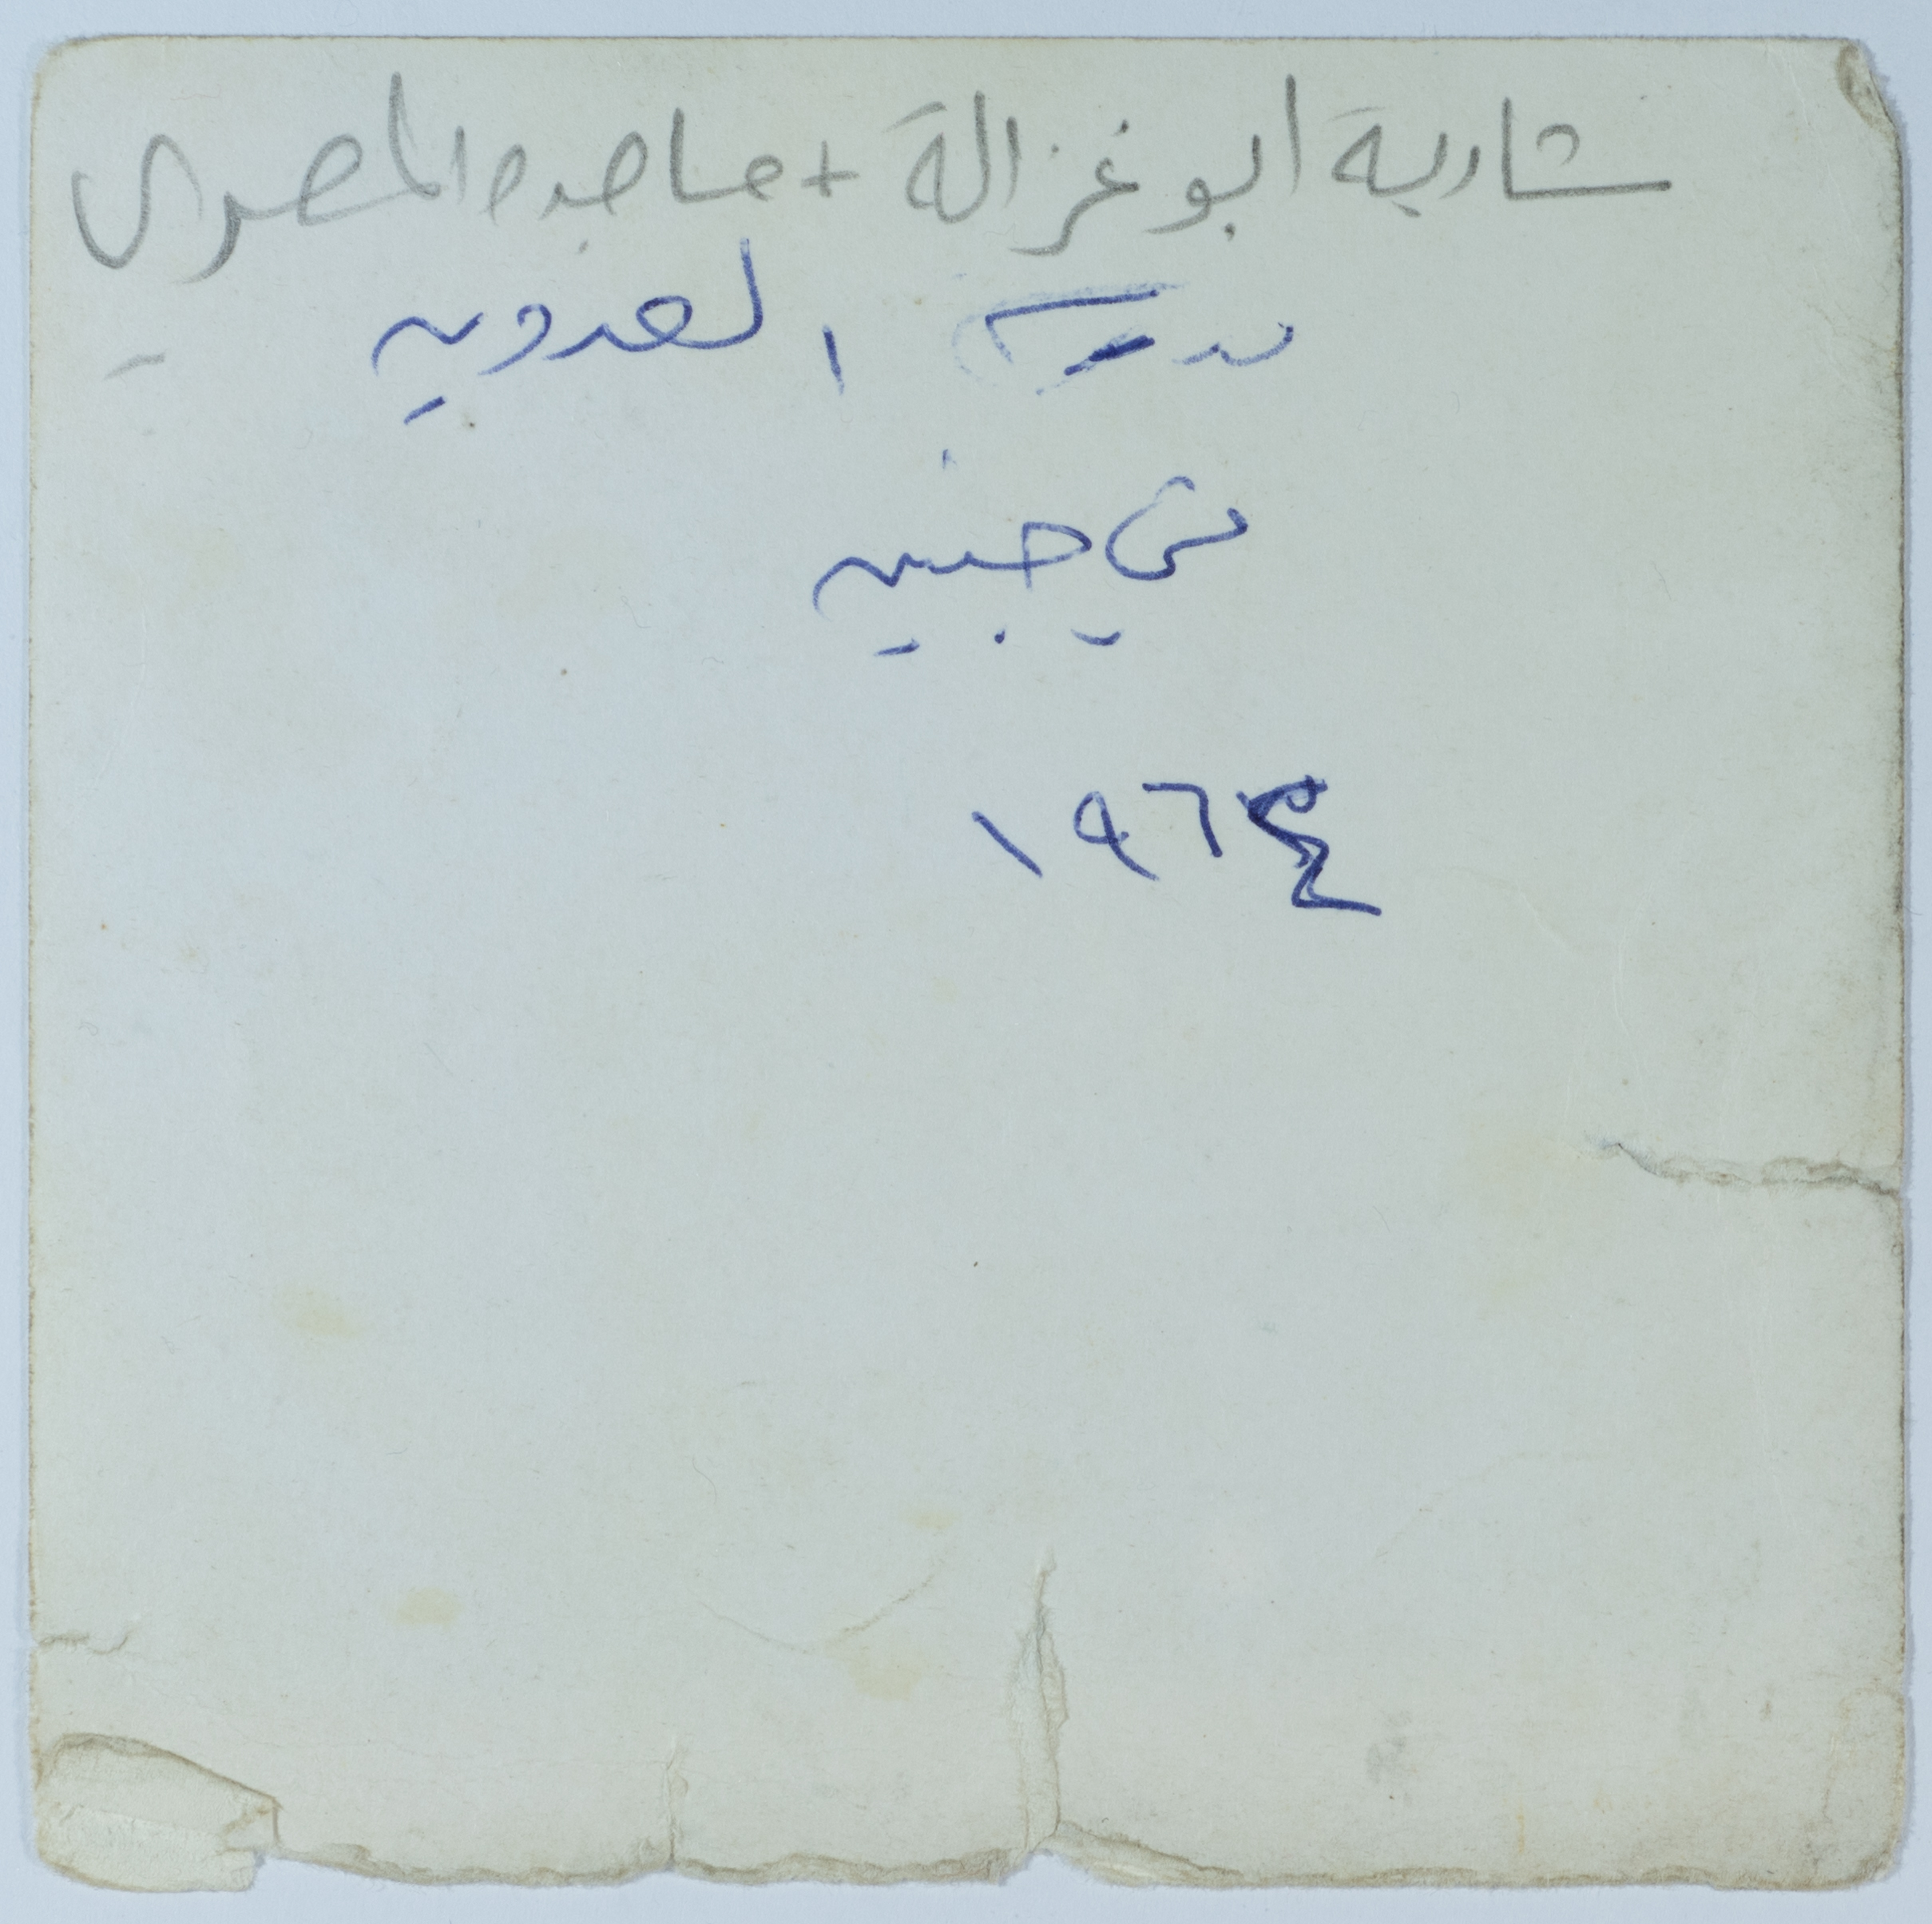 شادية ابو غزالة + ماجده المصري
مدرسة العدويه
في جنين
١٩٦٤